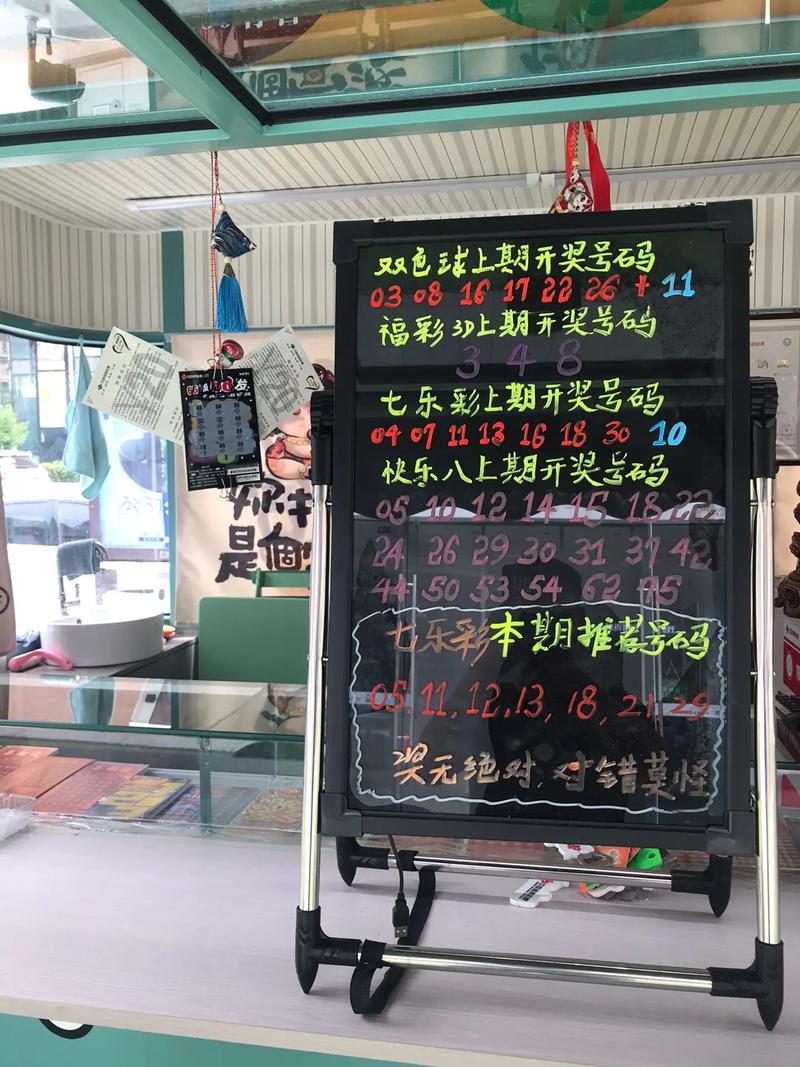 双色球上期开奖号码
03 08 16 17 22 26 + 11
福彩3D上期开奖号码
3 4 8
七乐彩上期开奖号码
04 07 11 13 16 18 30 10
快乐八上期开奖号码
05 10 12 14 15 18 22
24 26 29 30 31 37 42
44 50 53 54 62 75
七乐彩本期推荐号码
05. 11. 12. 13, 18, 21. 29
奖无绝对,对错莫怪
是個